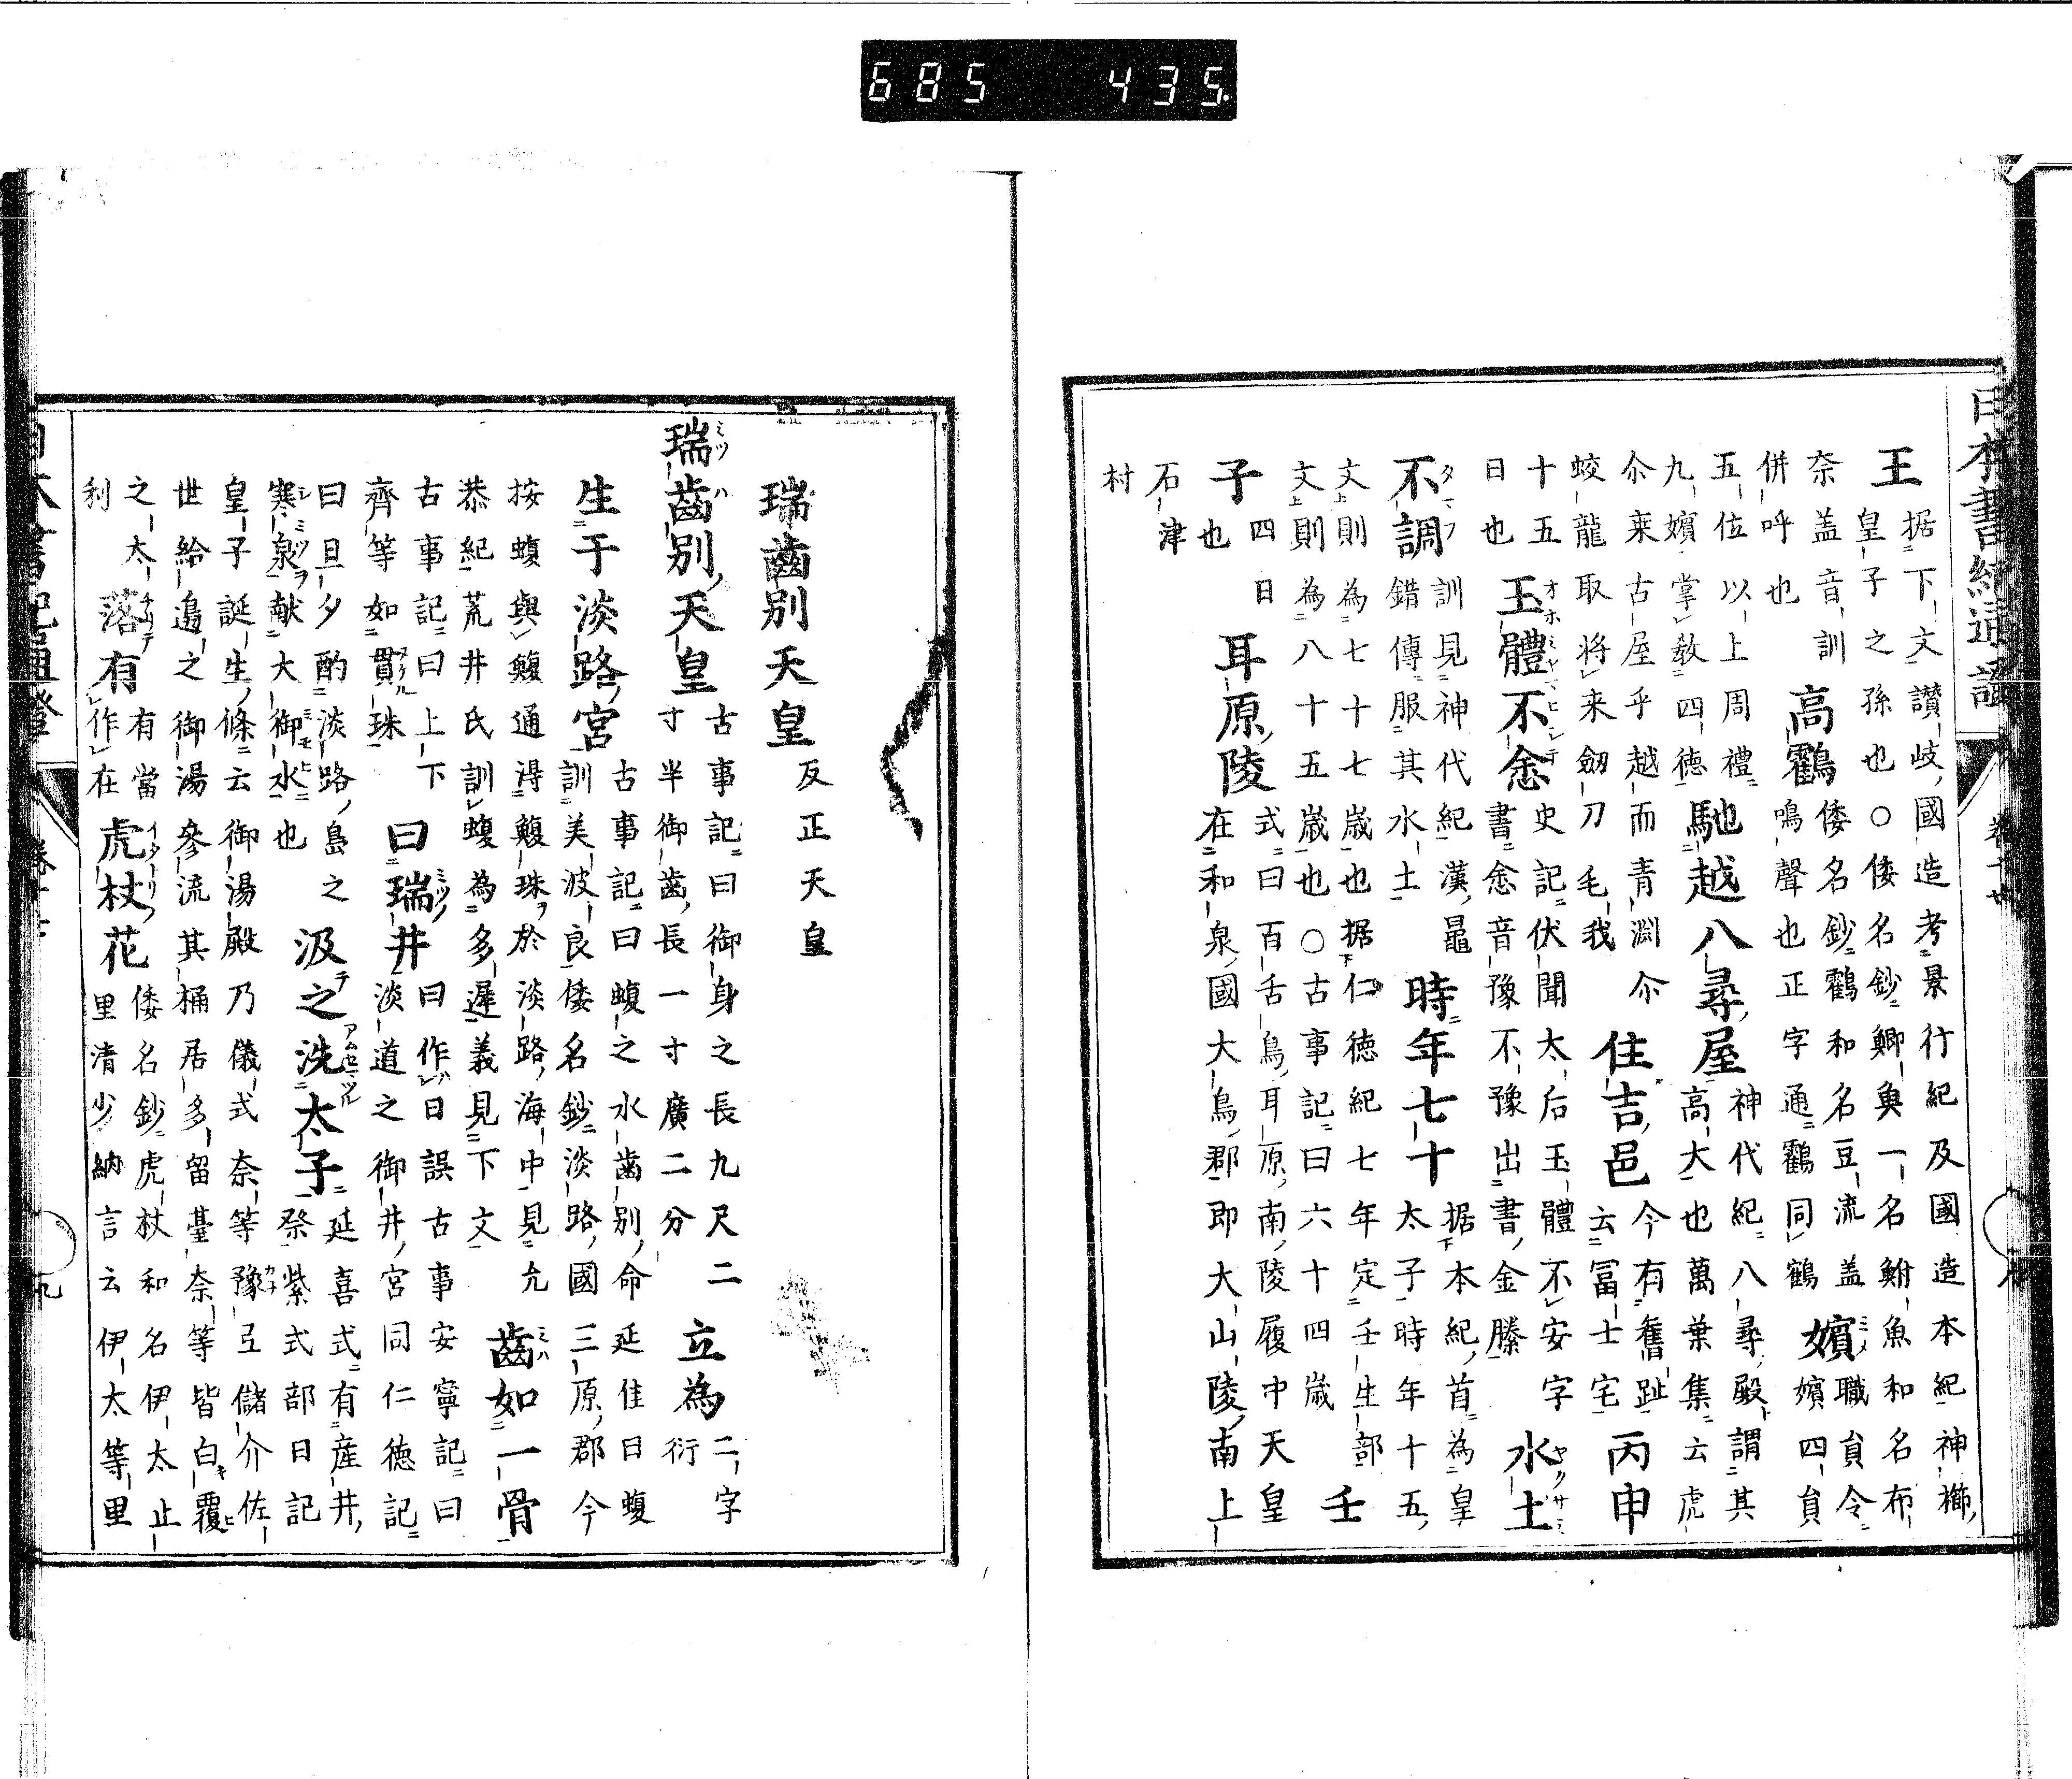 日本書紀通證
王
据下文讃岐國造考景行紀及國造本紀神櫛
皇子之孫也○倭名鈔鯽魚一名鮒魚和名布
奈盖音訓
併呼也
高鸖
倭名鈔鸖和名豆流盖
鳴聲也正字通鸖同鶴
嬪ミメ
職員令
嬪四員
五位以上周禮
九嬪掌敎四徳
馳越八尋屋
神代紀八尋殿謂其
高大也萬葉集云虎
尒乗古屋乎越而青淵尒
蛟龍取将来劔刀毛我
住吉邑
今有舊趾
云冨士宅
丙申
十五
日也
玉體不悆
史記伏聞太后玉體不安字
書悆音豫不豫出書金滕
水土
不調
訓見神代紀漢鼂
錯傳服其水土
時年七十
据本紀首為皇
太子時年十五
文則為七十七歳也据仁徳紀七年定壬生部
文則為八十五歳也○古事記曰六十四歳
壬
子
四日
也
耳原陵
式曰百舌鳥耳原南陵履中天皇
在和泉國大鳥郡即大山陵南上
石津
村
瑞齒別天皇 反正天皇
瑞齒別天皇
古事記曰御身之長九尺二
寸半御歯長一寸廣二分
立為
二字
衍
生于淡路宮
古事記曰蝮之水歯別命延佳曰蝮
訓美波良倭名鈔淡路國三原郡今
按蝮與鰒通淂鰒珠於淡路海中見允
恭紀荒井氏訓蝮為多遅義見下文
齒如一骨
古事記曰上下
齊等如貫珠
曰瑞井
曰作日誤古事安寧記曰
淡道之御井宮同仁徳記
曰旦夕酌淡路島之
寒泉献大御水也
汲之洗太子
延喜式有産井
祭紫式部日記
皇子誕生條云御湯殿乃儀式奈等豫弖儲介佐
世給邉之御湯參流其桶居多留臺奈等皆白覆
之太
利
落有
有當
作在
虎杖花
倭名鈔虎杖和名伊太止
里清少納言云伊太等里
685 435